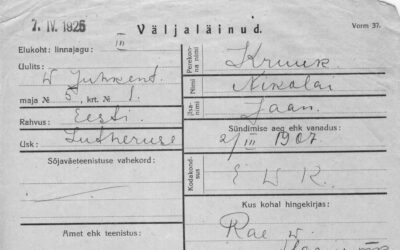 7. IV. 1925 Väljaläinud. Vorm 37.
Elukoht: linnajagu: III
Uulits:
W Juhkent.
maja № 5, krt. № 1.
Rahvus: Eesti.
Usk: Lutheruse
Sõjaväeteenistuse vahekord:
Amet ehk teenistus:
Perekonna nimi Kruuk
Nimi Nikolai
Isanimi Jaan.
Sündimise aeg ehk vanadus:
2/III 1907
Kodakondsus E W K.
Kus kohal hingekirjas:
Rae w.